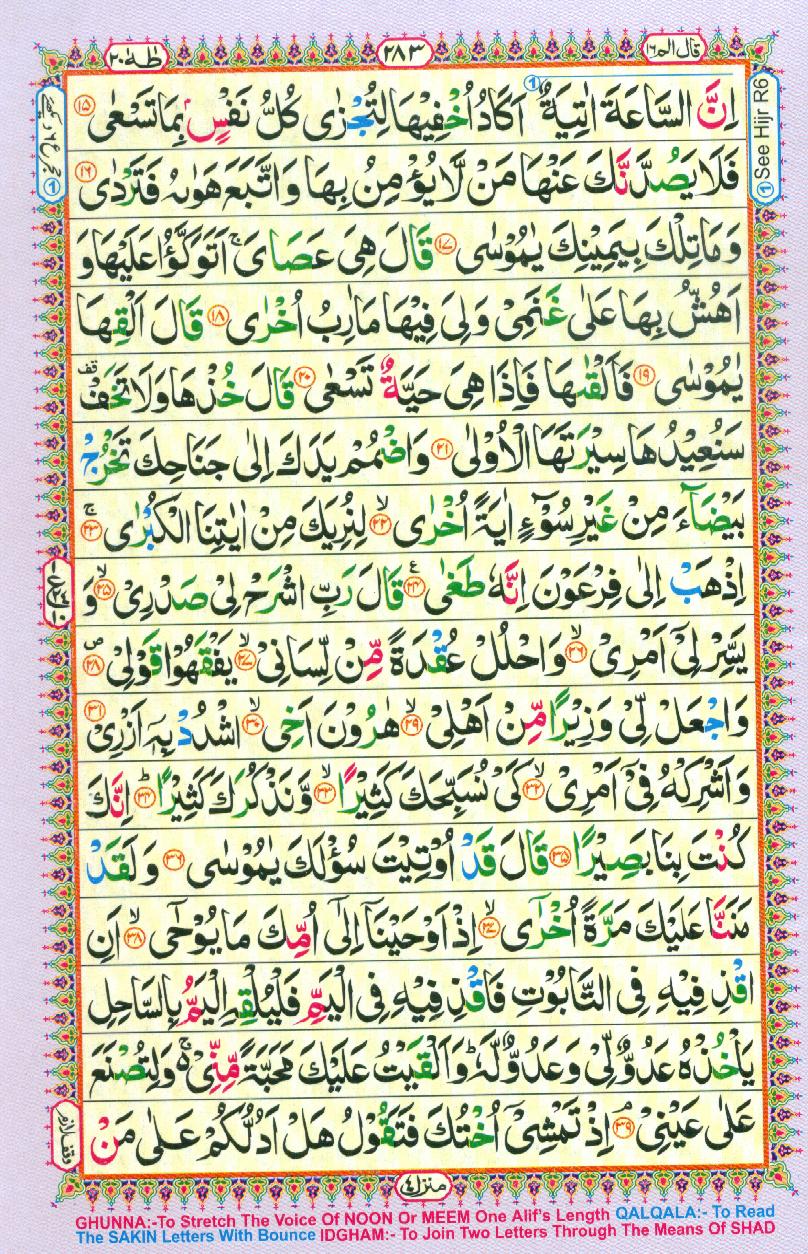 قال الم ١٦
٢٨٣
طٰهٰ ٢٠
① See Hijr R6
اِنَّ السَّاعَةَ اٰتِيَةٌ اَكَادُ اُخْفِيْهَا لِتُجْزٰى كُلُّ نَفْسٍۭ بِمَا تَسْعٰى ۝۱۵
فَلَا يَصُدَّنَّكَ عَنْهَا مَنْ لَّا يُؤْمِنُ بِهَا وَاتَّبَعَ هَوٰىهُ فَتَرْدٰى ۝۱۶
وَمَا تِلْكَ بِيَمِيْنِكَ يٰمُوْسٰى ۝۱۷ قَالَ هِىَ عَصَاىَ ۚ اَتَوَكَّؤُا عَلَيْهَا وَ
اَهُشُّ بِهَا عَلٰى غَنَمِىْ وَلِىَ فِيْهَا مَاٰرِبُ اُخْرٰى ۝۱۸ قَالَ اَلْقِهَا
يٰمُوْسٰى ۝۱۹ فَاَلْقٰىهَا فَاِذَا هِىَ حَيَّةٌ تَسْعٰى ۝۲۰ قَالَ خُذْهَا وَلَا تَخَفْ ۥقف
سَنُعِيْدُهَا سِيْرَتَهَا الْاُوْلٰى ۝۲۱ وَاضْمُمْ يَدَكَ اِلٰى جَنَاحِكَ تَخْرُجْ
بَيْضَآءَ مِنْ غَيْرِ سُوْٓءٍ اٰيَةً اُخْرٰى ۙ۝۲۲ لِنُرِيَكَ مِنْ اٰيٰتِنَا الْكُبْرٰى ۚ۝۲۳
اِذْهَبْ اِلٰى فِرْعَوْنَ اِنَّهٗ طَغٰى ۝۲۴ قَالَ رَبِّ اشْرَحْ لِىْ صَدْرِىْ ۙ۝۲۵ وَ
يَسِّرْ لِىْٓ اَمْرِىْ ۙ۝۲۶ وَاحْلُلْ عُقْدَةً مِّنْ لِّسَانِىْ ۙ۝۲۷ يَفْقَهُوْا قَوْلِىْ ۪۝۲۸
وَاجْعَلْ لِّىْ وَزِيْرًا مِّنْ اَهْلِىْ ۙ۝۲۹ هٰرُوْنَ اَخِى ۙ۝۳۰ اشْدُدْ بِهٖٓ اَزْرِىْ ۙ۝۳۱
وَاَشْرِكْهُ فِىْٓ اَمْرِىْ ۙ۝۳۲ كَىْ نُسَبِّحَكَ كَثِيْرًا ۙ۝۳۳ وَّنَذْكُرَكَ كَثِيْرًا ؕ۝۳۴ اِنَّكَ
كُنْتَ بِنَا بَصِيْرًا ۝۳۵ قَالَ قَدْ اُوْتِيْتَ سُؤْلَكَ يٰمُوْسٰى ۝۳۶ وَلَقَدْ
مَنَنَّا عَلَيْكَ مَرَّةً اُخْرٰٓى ۙ۝۳۷ اِذْ اَوْحَيْنَآ اِلٰٓى اُمِّكَ مَا يُوْحٰٓى ۙ۝۳۸ اَنِ
اقْذِفِيْهِ فِى التَّابُوْتِ فَاقْذِفِيْهِ فِى الْيَمِّ فَلْيُلْقِهِ الْيَمُّ بِالسَّاحِلِ
يَاْخُذْهُ عَدُوٌّ لِّىْ وَعَدُوٌّ لَّهٗ ؕ وَاَلْقَيْتُ عَلَيْكَ مَحَبَّةً مِّنِّىْ ۚ وَلِتُصْنَعَ
عَلٰى عَيْنِىْ ۘ۝۳۹ اِذْ تَمْشِىْٓ اُخْتُكَ فَتَقُوْلُ هَلْ اَدُلُّكُمْ عَلٰى مَنْ
منزل ٤
GHUNNA:-To Stretch The Voice Of NOON Or MEEM One Alif's Length QALQALA:- To Read
The SAKIN Letters With Bounce IDGHAM:- To Join Two Letters Through The Means Of SHAD